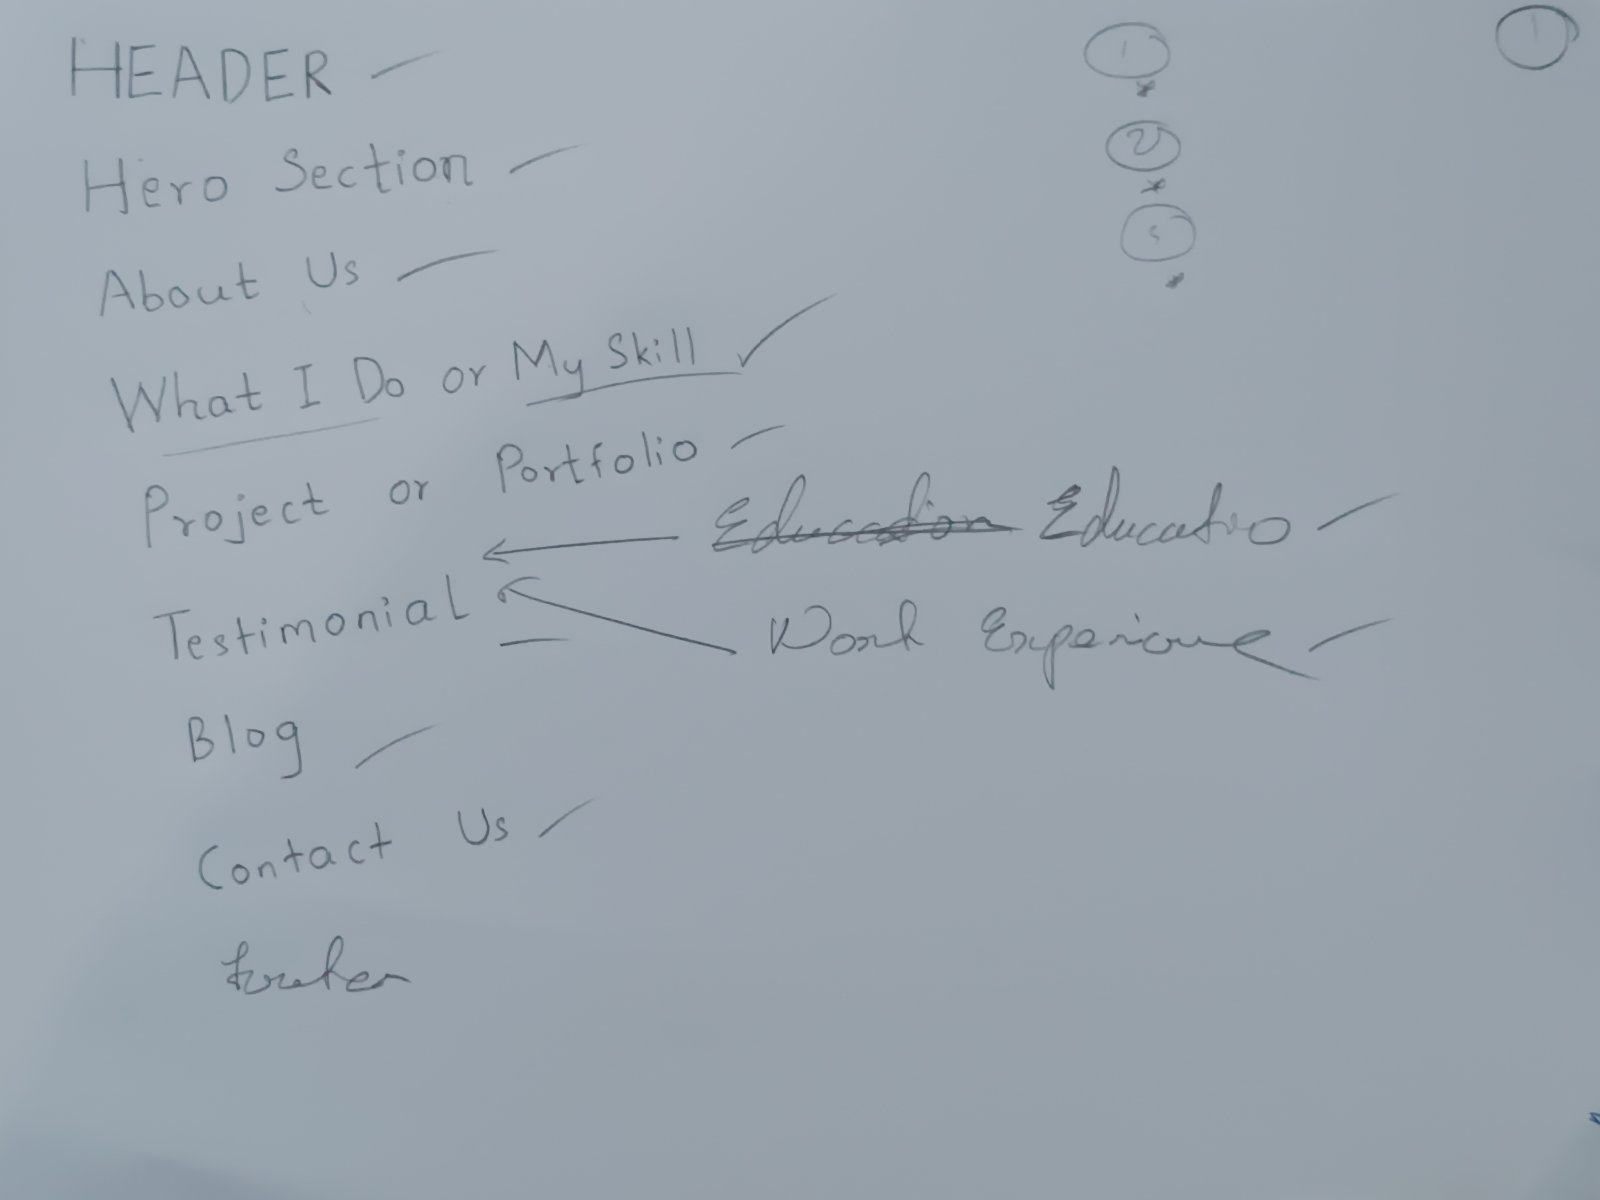 HEADER
1
1
Hero Section
2
About Us
What I Do or My Skill
Project or Portfolio
Education Educatio
Testimonial
Work Experience
Blog
Contact Us